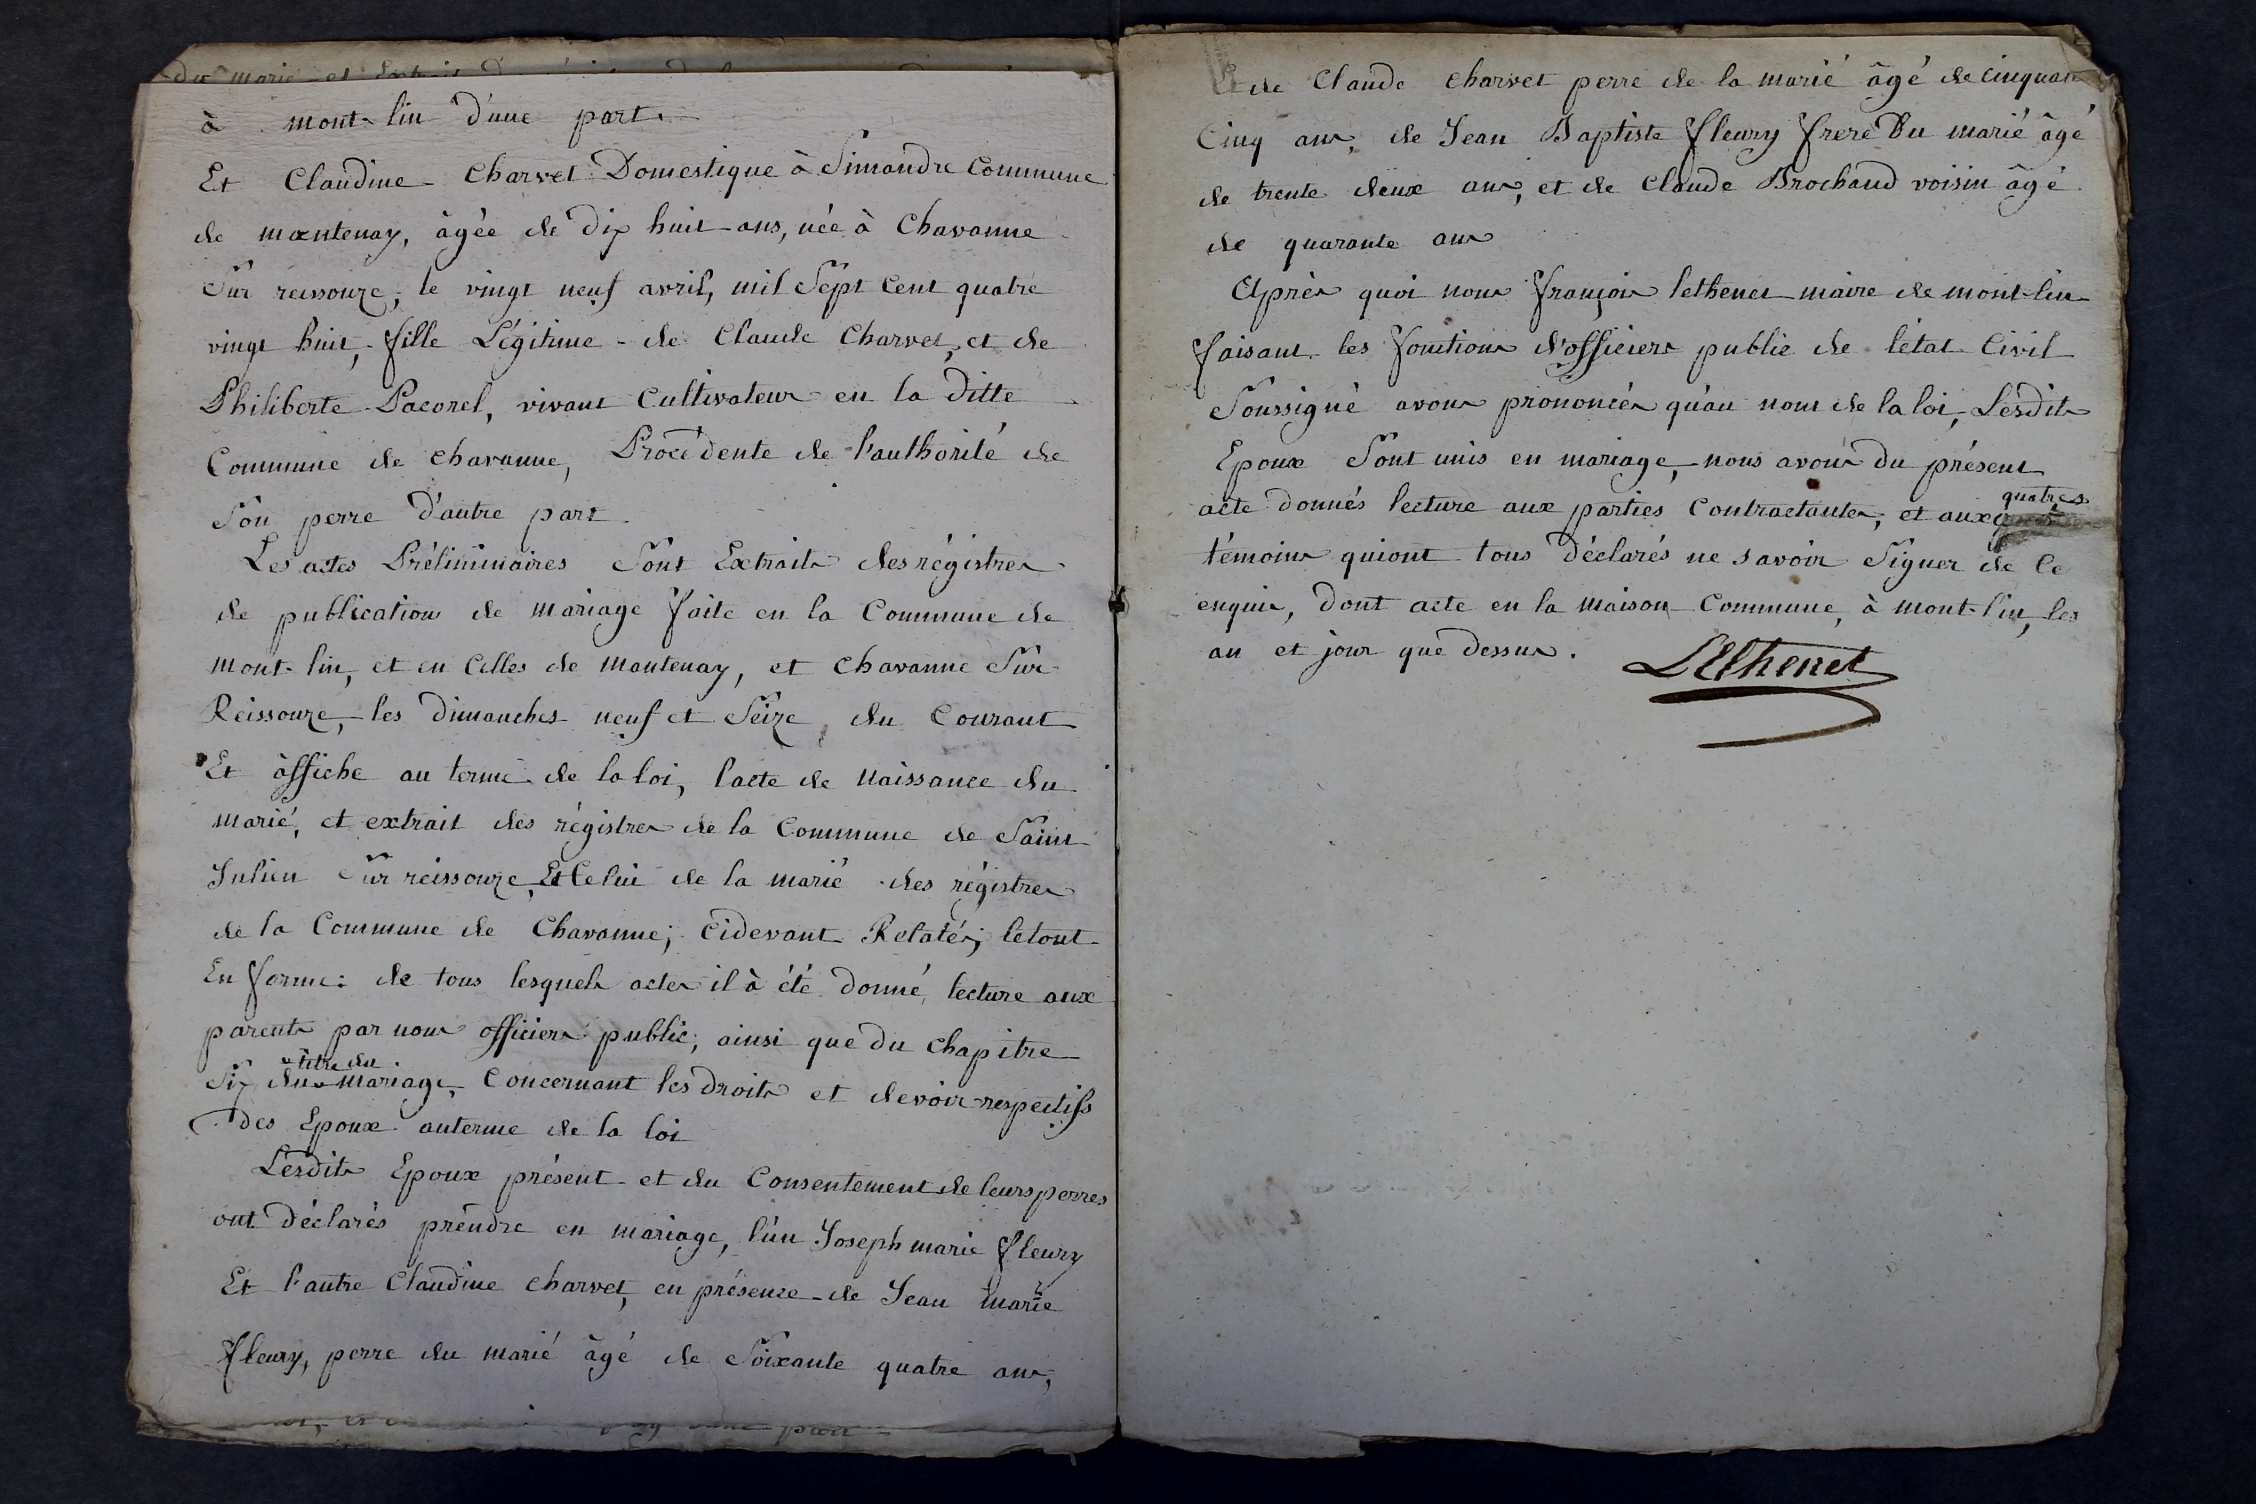 du marié et Extrait
à mont-lin d'une part.
Et Claudine Charvet Domestique à Simandre Commune
de mantenay, âgée de dix huit ans, née à Chavanne
Sur reissouze, le vingt neuf avril, mil Sept Cent quatre
vingt huit, fille Légitime de Claude Charvet, et de
Philiberte Paconel, vivant Cultivateurs en la ditte
Commune de Chavanne, Procédente de l'authorité de
Son perre d'autre part.
Les actes Préliminaires Sont Extraits des régistres
de publications de mariage faite en la Commune de
mont-lin, et en Celles de mantenay, et Chavanne Sur
Reissouze, les dimanches neuf et Seize du Courant
Et àffiche au terme de la loi, l'acte de naissance du
marié, et extrait des régistres de la Commune de Saint
Julien Sur reissouze, Et Celui de la marié des régistres
de la Commune de Chavanne; Cidevant Relatés; letout
En forme: de tous lesquels actes il à été donné, lecture aux
parents par nous officiers public; ainsi que du chapitre
titre du
Six du mariage, Concernant les droits et devoirs respectifs
des Epoux auterme de la loi
Lesdits Epoux présent et du Consentement de leurs perres
ont déclarés prendre en mariage, l'un Joseph marie fleury
Et l'autre Claudine Charvet, en présence de Jean marie
fleury, perre du marié âgé de Soixante quatre ans,
de Claude Charvet perre de la marié âgé de cinquante
Cinq ans, de Jean Baptiste fleury frere Du marié âgé
de trente deux ans, et de Claude Brochand voisin âgé
de quarante ans
Après quoi nous françois lethenet maire de mont-lin
faisant les fonctions d'officiers public de l'état Civil
Soussigné avons prononcés qu'au nom de la loi, Lesdits
Epoux Sont unis en mariage, nous avons du présent
acte donnés lecture aux parties Contractantes, et aux quatres
témoins quiont tous déclarés ne savoir Signer de Ce
enquis, dont acte en la maison Commune, à mont-lin, les
an et jour que dessus.
LEthenet